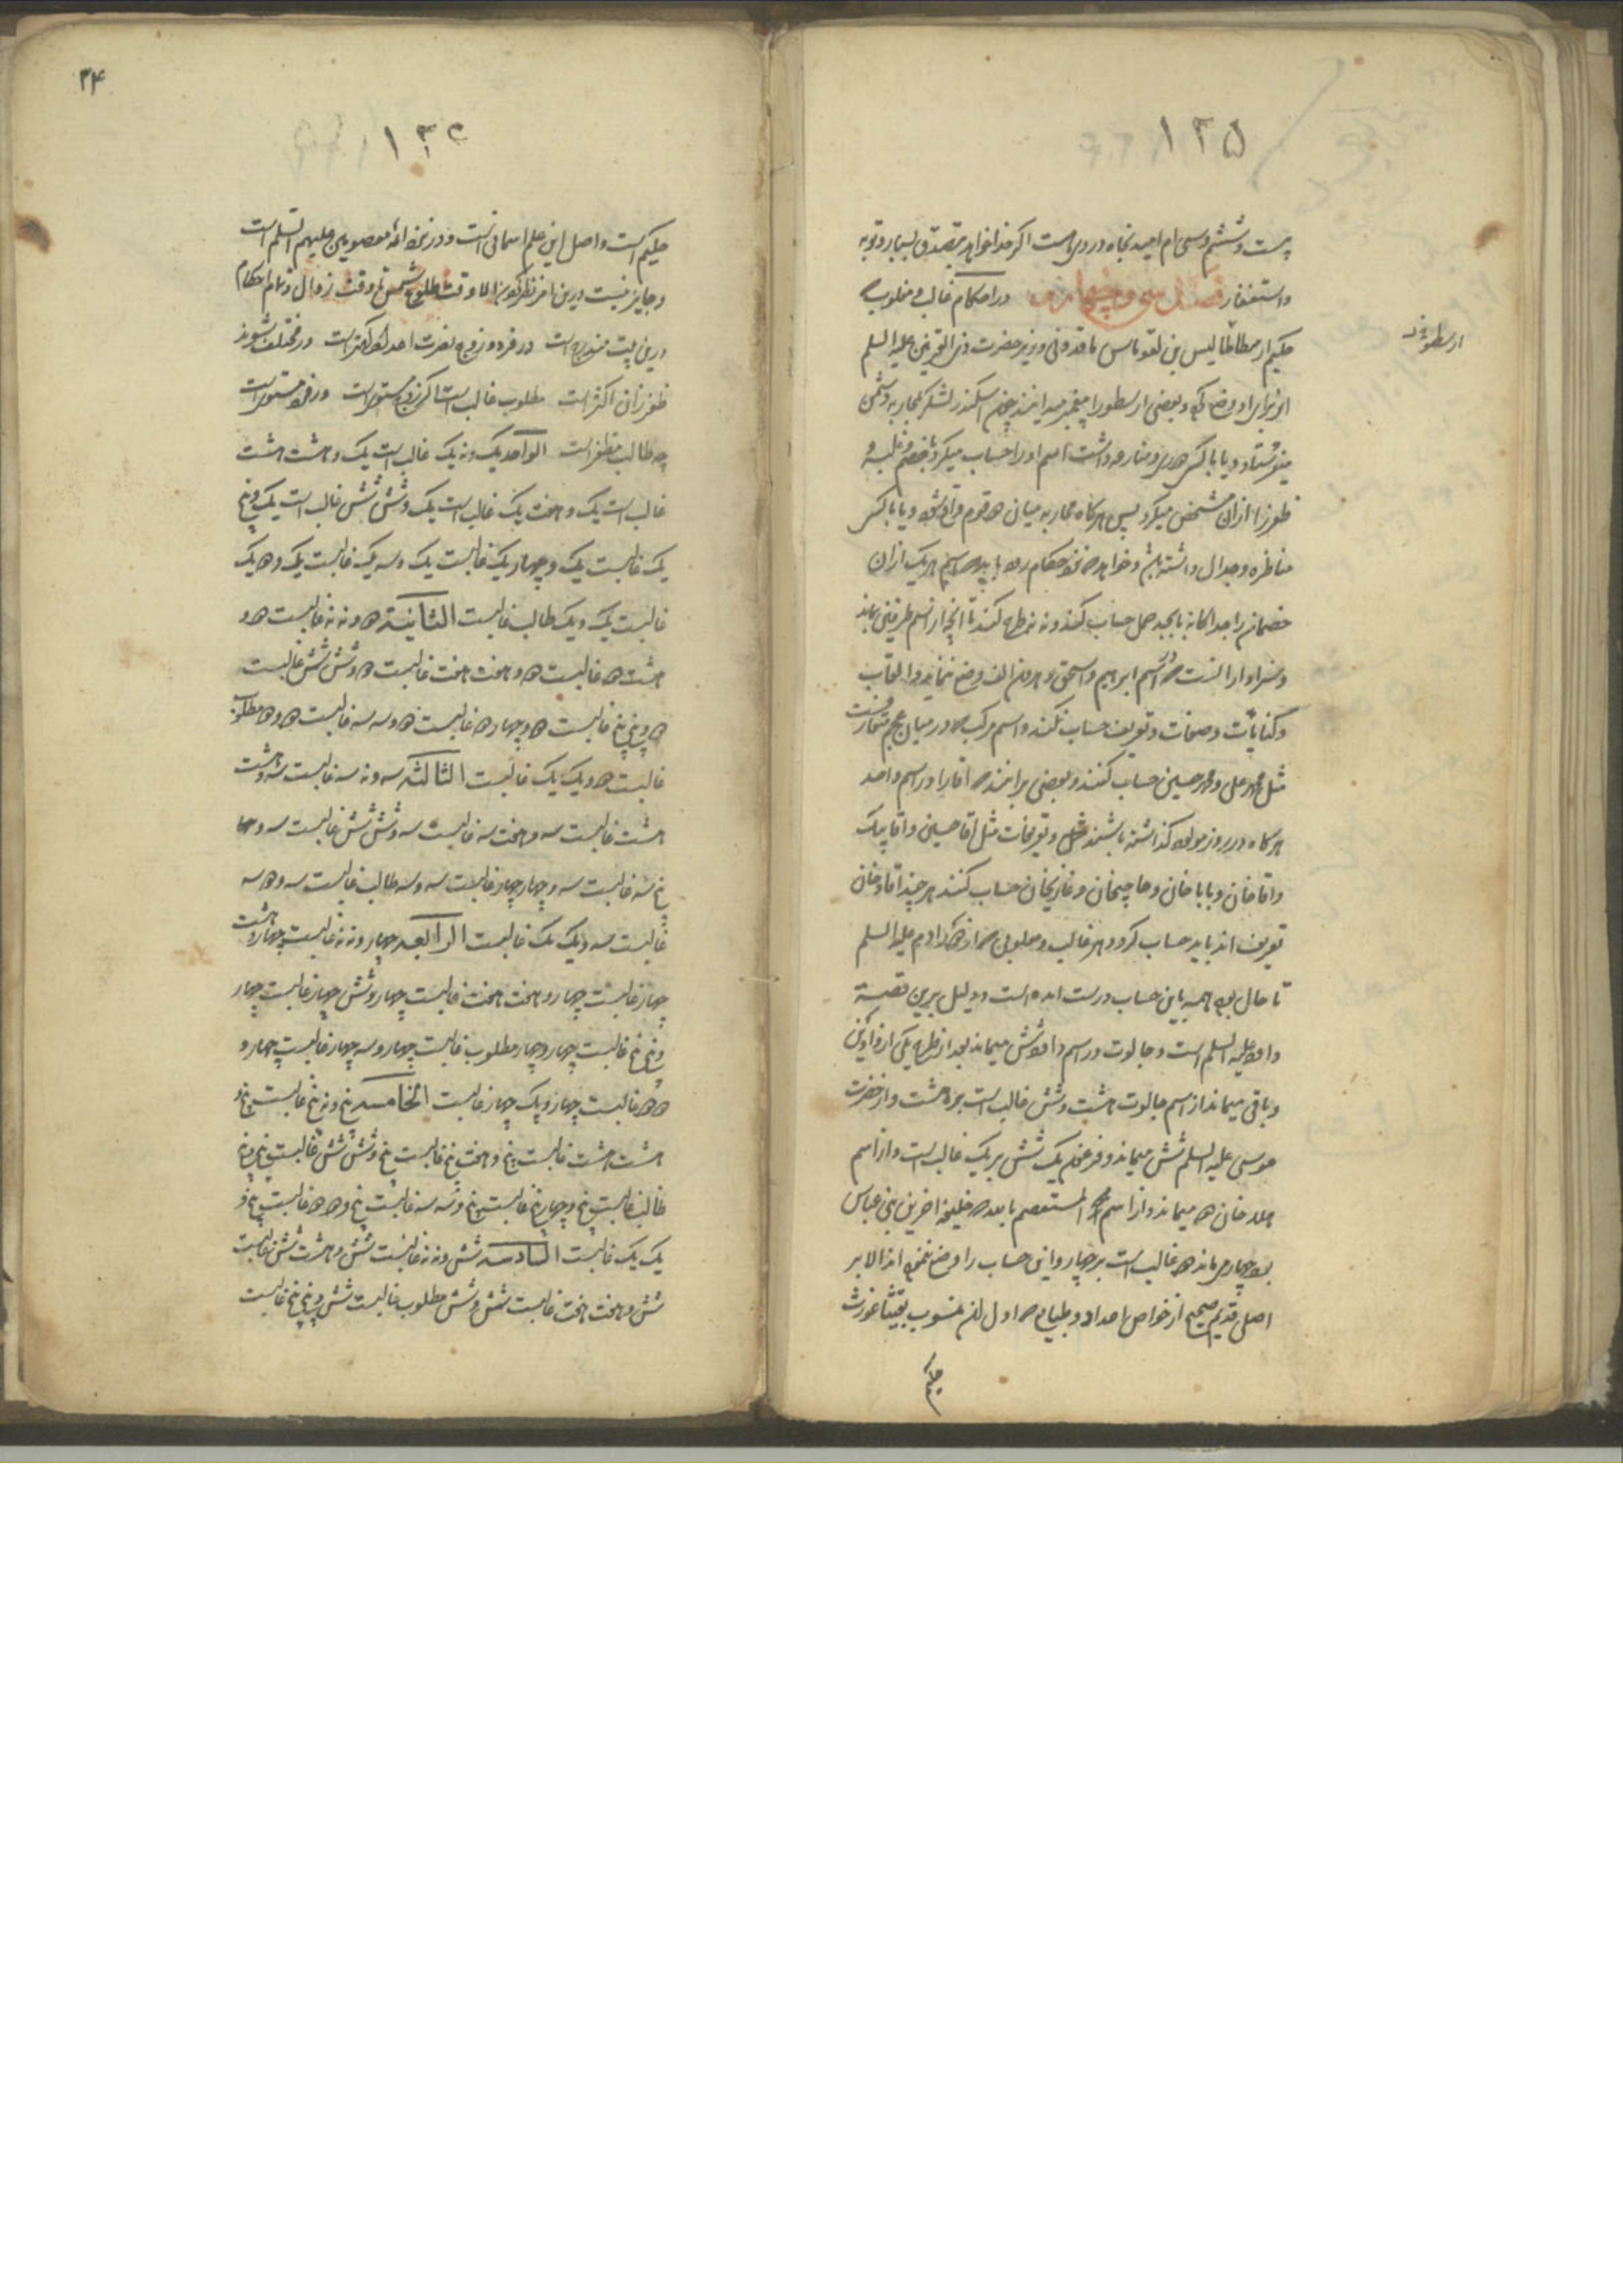 ۱۲۵
بیست و ششم و سی ام امید نجاه درو هست اکر خدا خواهد بتصدق بسیار و توبه
و استغفار فصل سی و چهارم در احکام غالب و مغلوب
حکیم ارسطاطالیس بن نقوماس ماقدونی وزیر حضرت ذی القرنین علیه السلم
ارسطو
این را برای او وضع کرده و بعضی ارسطو را پیغمبر میدانند چون اسکندر لشکر بمحاربه دشمن
میفرستاد و یا با کسی منازعه داشت اسم او را حساب میکرد
ظفر را از ان مشخص میکرد پس هرکاه محاربه میان دو قوم واقع شود و یا با کسی
مناظره و جدال داشته باشد و خواهد که باید که اسم هر یک از ان
خصمان را جداکانه بابجد جمل حساب کنند و نه نه طرح کنند تا انچه از اسم طرفین بماند
و سزاوار انست که در اسم ابراهیم و اسحق و هرون الف وضع نمایند و القاب
و کنایات و صفات و تعریف حساب نکنند و اسم مرکب که در میان عجم متعارفست
مثل محمد علی و محمد حسین حساب کنند و بعضی برانند که اقا را در اسم واحد
هرکاه در روز مولود کذاشته باشند و تعریفات مثل اقا حسین و اقا بیک
و اقا خان و بابا خان و حاجیخان و غازیخان حساب کنند هر چند اقا و خان
تعریف اند باید حساب کرد و هر غالب و مغلوبی که از زمان ادم علیه السلم
تا حال بوده همه باین حساب درست امده است و دلیل برین قصه
داود علیه السلم است و جالوت در اسم داود شش میماند بعد از طرح یکی از واوین
و باقی میماند از اسم جالوت هشت و شش غالب است بر هشت و از حضرت
موسی علیه السلم شش میماند و فرعون یک شش بر یک غالب است و از اسم
هلاد خان دو میماند و از اسم محمد المستعصم بالله که خلیفه اخرین بنی عباس
بود چهار میماند دو غالب است بر چهار و این حساب را وضع نموده اند الا بر
اصل قدیم صحیح از خواص اعداد و طبایع که اول ان منسوب بفیثاغورث
حکیم
۲۴
۱۳۲
حکیم است و اصل این علم اسمانی است و در نزد ائمه معصومین علیهم السلم است
و جایز نیست درین امر نظر کردن الا وقت طلوع شمس تا وقت زوال و تمام احکام
درین بیت مندرج است در فرد و زوج نصرت اعداد کمتر است ور مختلف شوند
ظفر زان اکثر است مطلوب غالب است اکر زوج مستویست ور فرد مستویست
چه طالب مظفر است الواحد یک و نه یک غالب است یک و هشت هشت
غالب است یک و هفت یک غالب است یک و شش شش غالب است یک و پنج
یک غالبست یک و چهار یک غالبست یک و سه یک غالبست یک و دو یک
غالبست یک و یک طالب غالبست الثانیة دو و نه نه غالبست دو و
هشت دو غالبست دو و هفت هفت غالبست دو و شش شش غالبست
دو و پنج پنج غالبست دو و چهار دو غالبست دو و سه سه غالبست دو و دو مطلوب
غالبست دو و یک یک غالبست الثالثه سه و نه سه غالبست سه و هشت
هشت غالبست سه و هفت سه غالبست سه و شش شش غالبست سه و
پنج سه غالبست سه و چهار چهار غالبست سه و سه طالب غالبست سه و دو سه
غالبست سه و یک یک غالبست الرابعه چهار و نه نه غالبست چهار و هشت
چهار غالبست چهار و هفت هفت غالبست چهار و شش چهار غالبست چهار
و پنج پنج غالبست چهار و چهار مطلوب غالبست چهار و سه چهار غالبست چهار و
دو دو غالبست چهار و یک چهار غالبست الخامسه پنج و نه پنج غالبست پنج و
هشت هشت غالبست پنج و هفت پنج غالبست پنج و شش شش غالبست پنج و پنج
طالب غالبست پنج و چهار پنج غالبست پنج و سه سه غالبست پنج و دو دو غالبست پنج و
یک یک غالبست السادسه شش و نه نه غالبست شش و هشت شش غالبست
شش و هفت هفت غالبست شش و شش مطلوب غالبست شش و پنج پنج غالبست